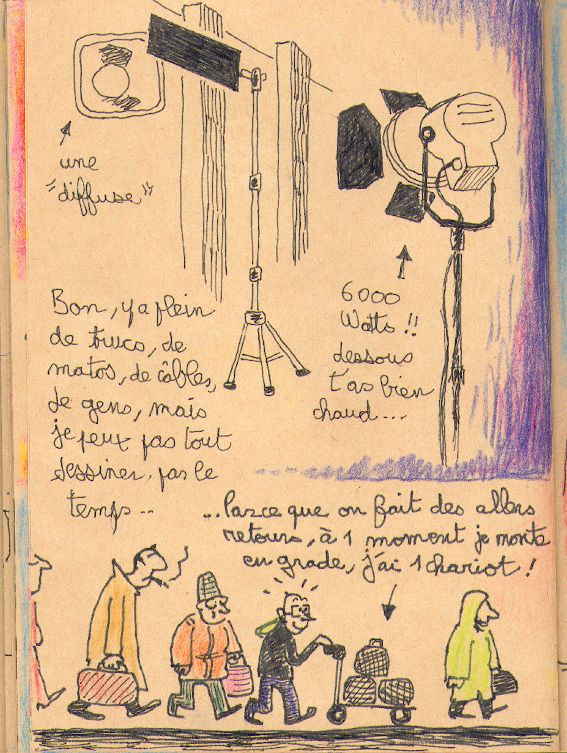 une
"diffuse"
6000
Watts !!
dessous
t'as bien
chaud...
Bon, y a plein
de trucs, de
matos, de câbles,
de gens, mais
je peux pas tout
dessiner, pas le
temps..
...Parce que on fait des allers
retours, à 1 moment je monte
en grade, j'ai 1 chariot !